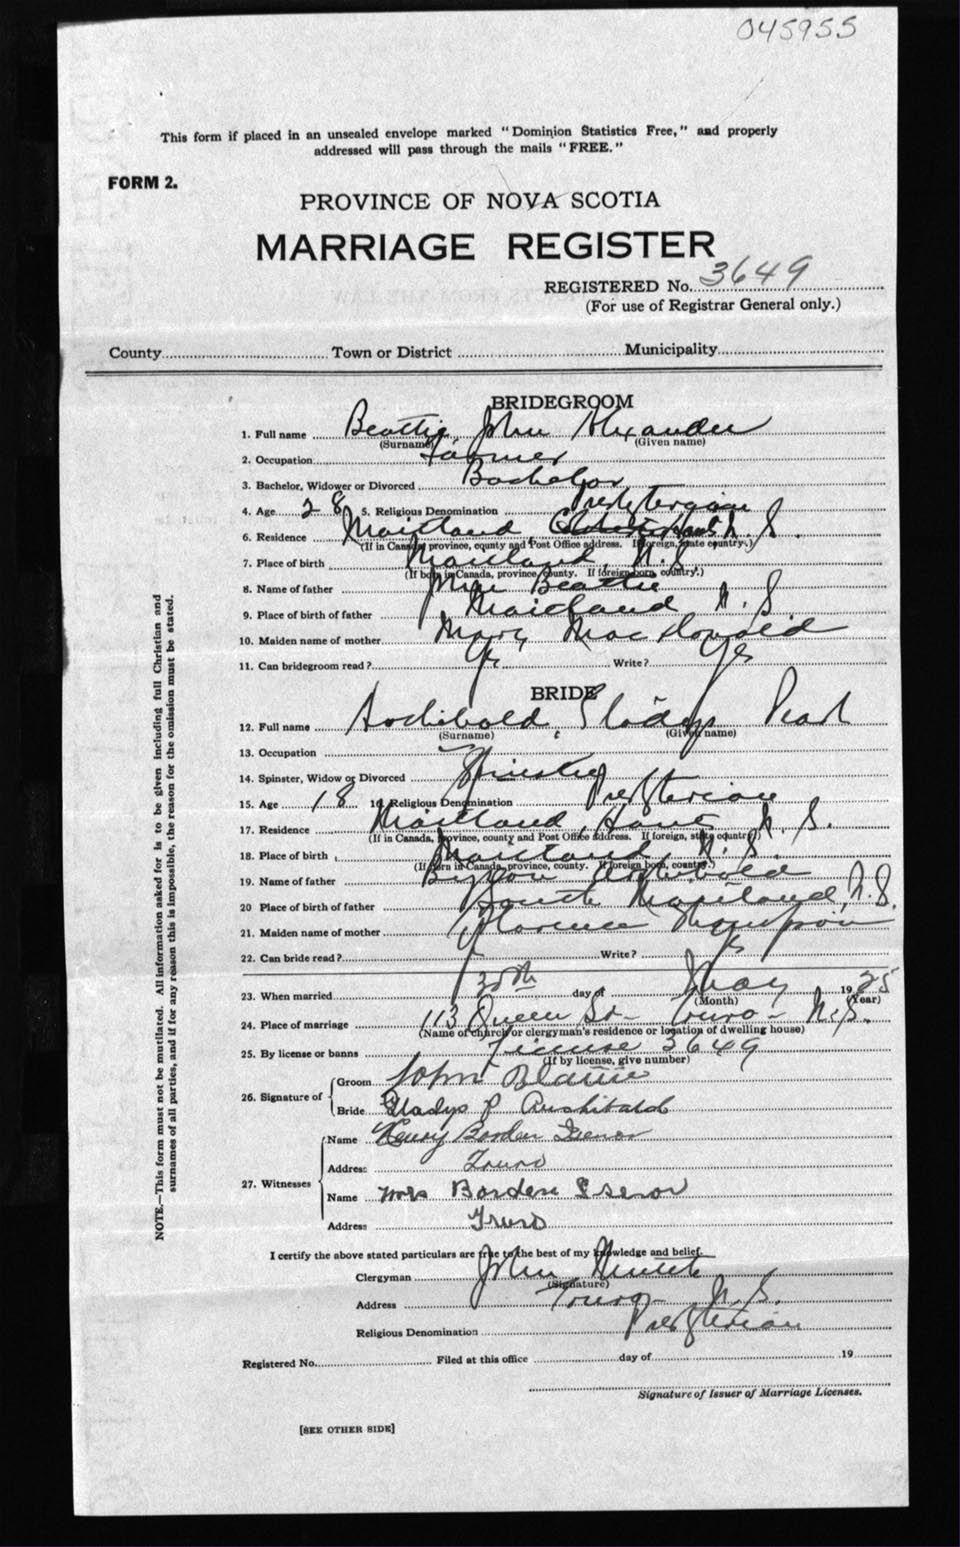 045955
This form if placed in an unsealed envelope marked "Dominion Statistics Free," and properly
addressed will pass through the mails "FREE."
FORM 2.
PROVINCE OF NOVA SCOTIA
MARRIAGE REGISTER
REGISTERED No. 3649
(For use of Registrar General only.)
County Town or District Municipality
BRIDEGROOM
1. Full name Beattie, John Alexander
(Surname) (Given name)
2. Occupation Farmer
3. Bachelor, Widower or Divorced Bachelor
4. Age 28 5. Religious Denomination Presbyterian
6. Residence Maitland Hants N. S.
(If in Canada, province, county and Post Office address. If foreign, state country.)
7. Place of birth Maitland, N.S
(If born in Canada, province, county. If foreign born, country.)
8. Name of father John Beattie
9. Place of birth of father Maitland N. S.
10. Maiden name of mother Mary MacDonald
11. Can bridegroom read? Yes Write? Yes
BRIDE
12. Full name Archibald, Gladys Pearl
(Surname) (Given name)
13. Occupation
14. Spinster, Widow or Divorced Spinster
15. Age 18 16. Religious Denomination Presbyterian
17. Residence Maitland, Hants N. S.
(If in Canada, Province, county and Post Office address. If foreign, state country)
18. Place of birth Maitland N. S.
(If born in Canada, province, county. If foreign born, country.)
19. Name of father Byron Archibald
20 Place of birth of father South Maitland, N.S.
21. Maiden name of mother Florence Thompson
22. Can bride read? Yes Write? Yes
23. When married 30th day of May 1925
(Month) (Year)
24. Place of marriage 113 Queen St- Truro- N.S.
(Name of church or clergyman's residence or location of dwelling house)
25. By license or banns License 3649
(If by license, give number)
26. Signature of Groom John Beattie
Bride Gladys P Archibald
27. Witnesses Name Henry Borden Isenor
Address Truro
Name Mrs Borden Isenor
Address Truro
I certify the above stated particulars are true to the best of my knowledge and belief.
Clergyman John
(Signature)
Address Truro N. S.
Religious Denomination Presbyterian
Registered No. Filed at this office day of 19
Signature of Issuer of Marriage Licenses.
[SEE OTHER SIDE]
NOTE.—This form must not be mutilated. All information asked for is to be given including full Christian and
surnames of all parties, and if for any reason this is impossible, the reason for the omission must be stated.